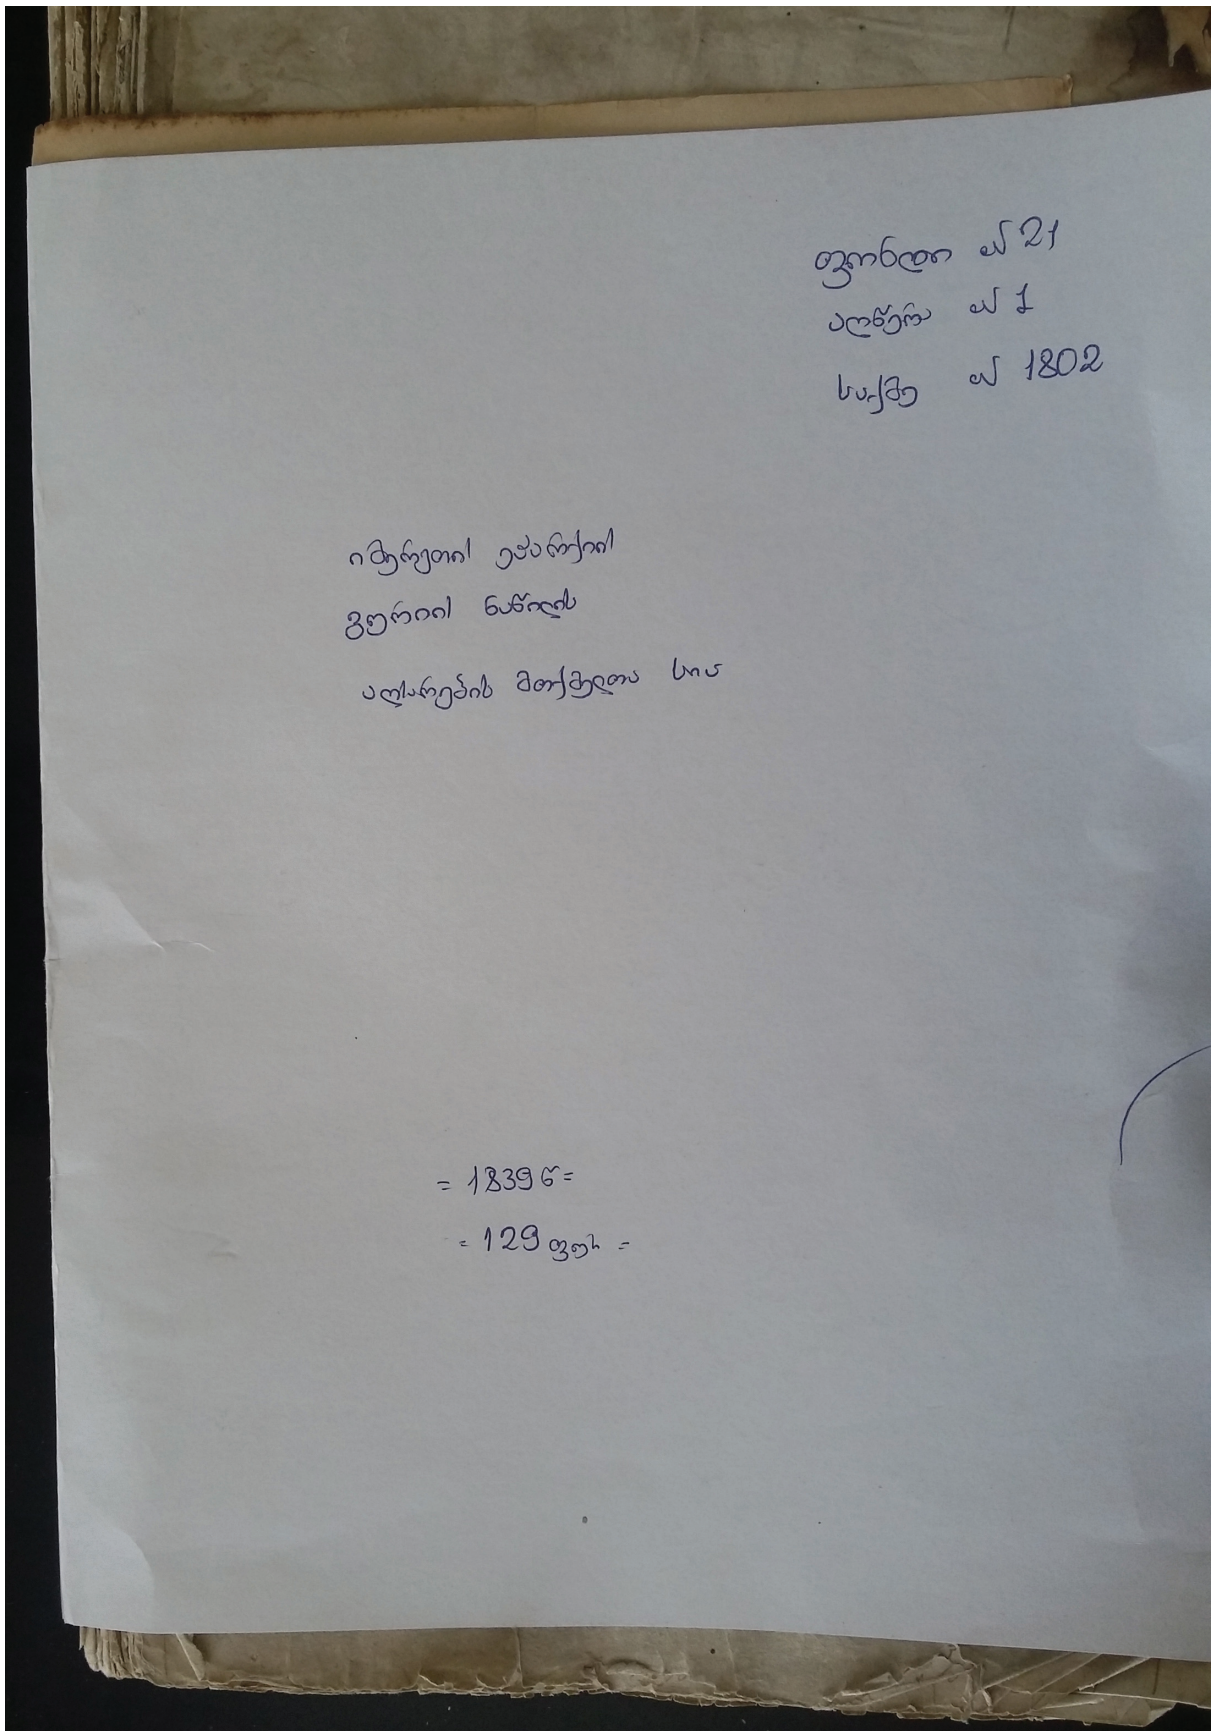 ფონდი № 21
აღწერა № 1
საქმე № 1802
იმერეთის ეპარქიის
გურიის ნაწილის
აღსარების მთქმელთა სია
= 1839 წ =
= 129 ფურ =